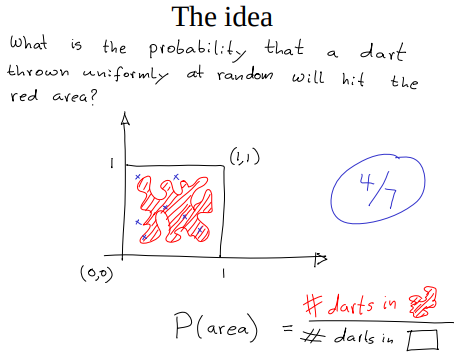 The idea
What is the probability that a dart
thrown uniformly at random will hit the
red area?
1
(1,1)
4/7
(0,0)
1
P(area) = # darts in
# darts in